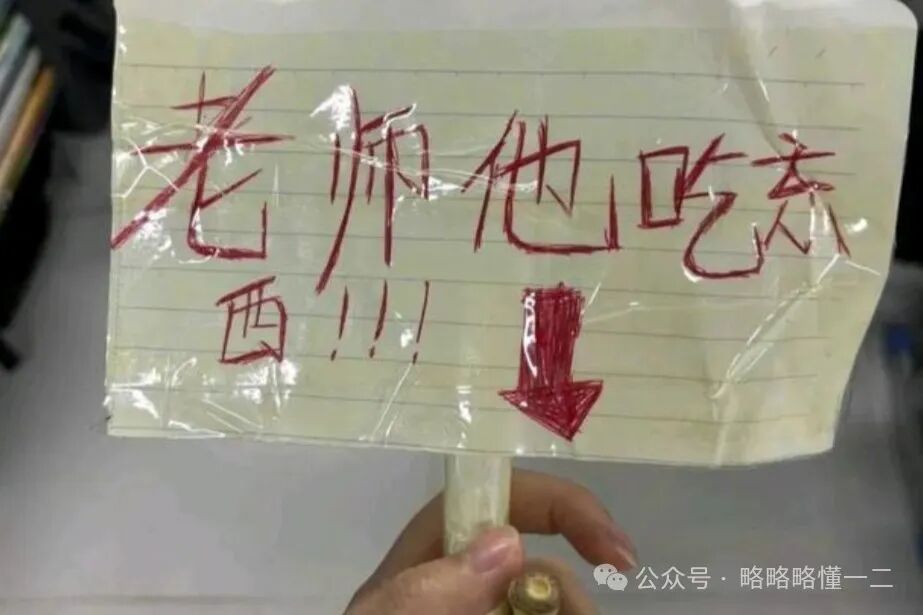 老师他吃东
西!!!
公众号·略略略懂一二